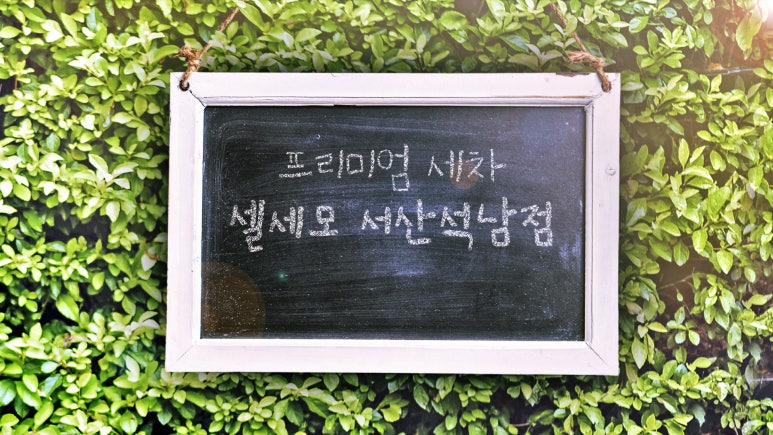 프리미엄 세차
셀세모 서산석남점